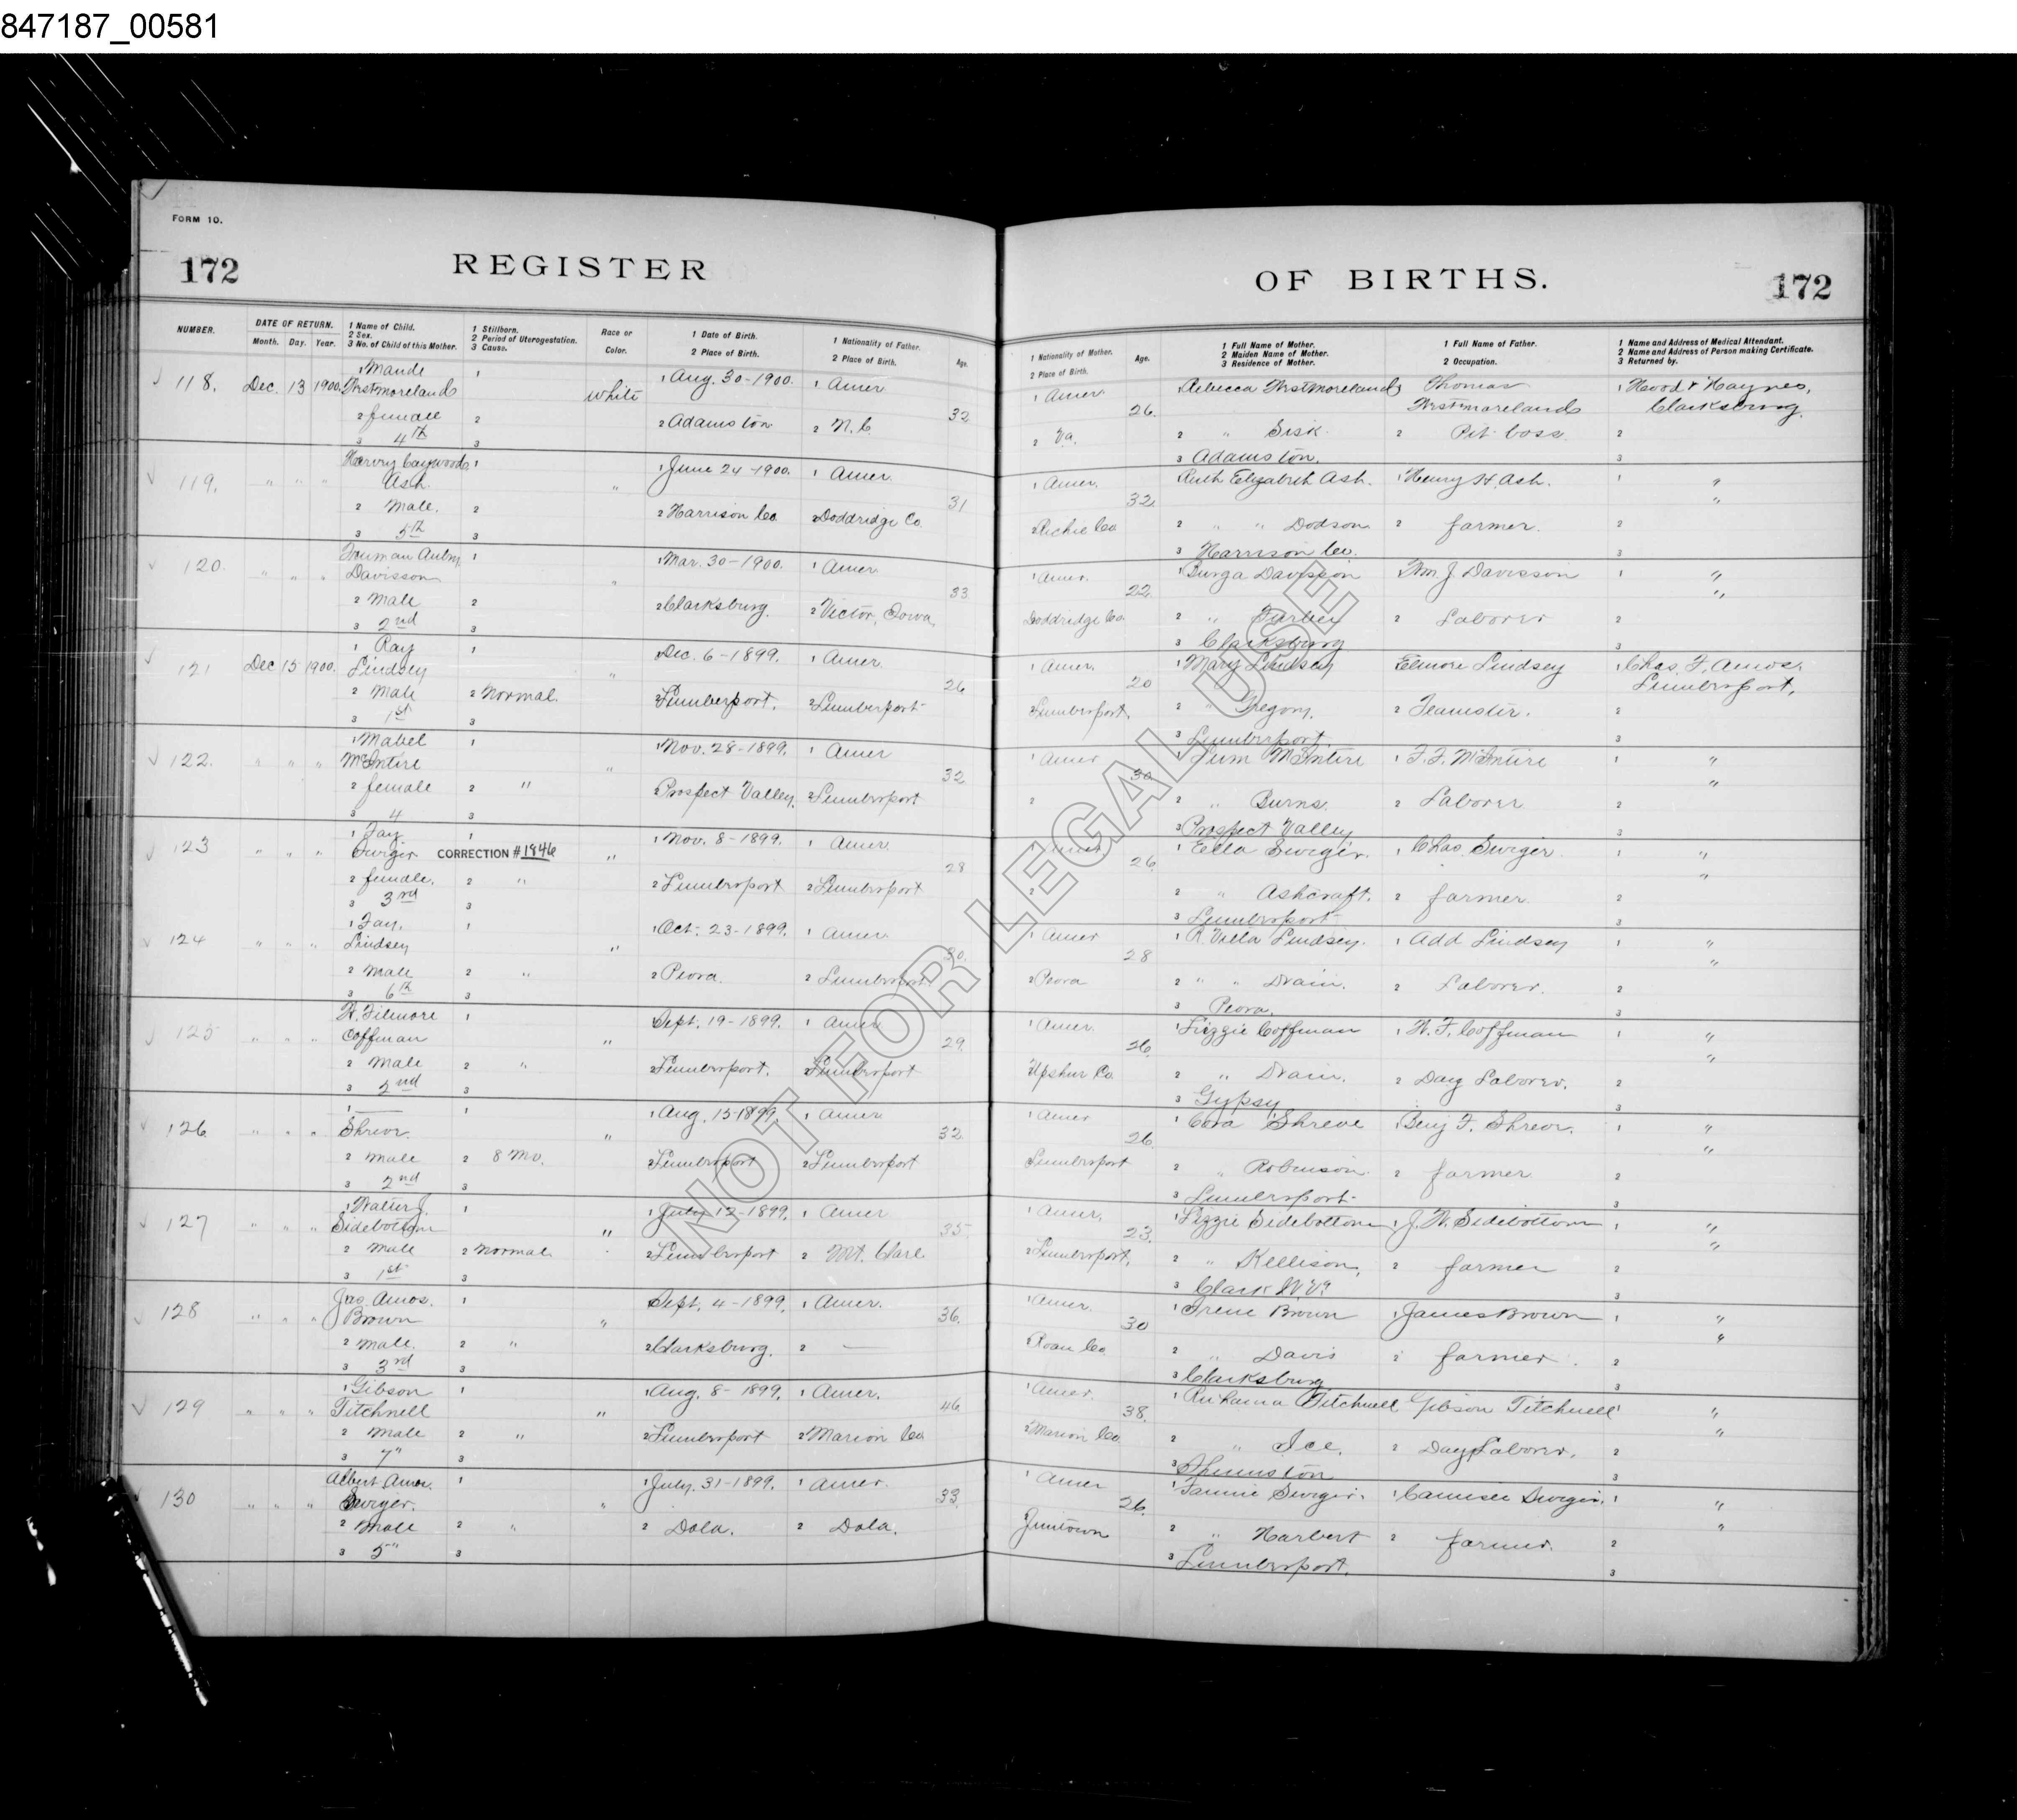 847187_00581
FORM 10.
172 REGISTER OF BIRTHS. 172
NUMBER.
DATE OF RETURN.
Month. Day. Year.
1 Name of Child.
2 Sex.
3 No. of Child of this Mother.
1 Stillborn.
2 Period of Uterogestation.
3 Cause.
Race or
Color.
1 Date of Birth.
2 Place of Birth.
1 Nationality of Father.
2 Place of Birth.
Age.
1 Nationality of Mother.
2 Place of Birth.
Age.
1 Full Name of Mother.
2 Maiden Name of Mother.
3 Residence of Mother.
1 Full Name of Father.
2 Occupation.
1 Name and Address of Medical Attendant.
2 Name and Address of Person making Certificate.
3 Returned by.
1 Maude 1
118. Dec. 13 1900. Westmoreland White 1 Aug. 30-1900. 1 Amer 32 1 Amer 26. Rebecca Westmoreland Thomas Westmoreland 1 Hood & Haynes, Clarksburg.
2 female 2 2 Adamston 2 N.C. 2 Va. 2 " Sisk. 2 Pit boss. 2
3 4th 3 3 Adamston. 3
Harvey Caywood 1
119. " " " Ash " 1 June 24-1900. 1 Amer. 31 1 Amer. 32 Ruth Elizabeth Ash. 1 Henry H. Ash. 1 " "
2 Male. 2 2 Harrison Co. 2 Doddridge Co. 2 Richie Co. 2 " " Dodson 2 farmer. 2
3 5th 3 3 Harrison Co. 3
Truman 1
120. " " " Davisson " 1 Mar. 30-1900. 1 Amer. 33 1 Amer. 22 1 Burga Davisson Wm J. Davisson 1 " "
2 Male 2 2 Clarksburg. 2 Victor, Iowa. Doddridge Co. 2 " Farley 2 Laborer 2
3 2nd 3 3 Clarksburg 3
1 Ray 1
121 Dec 15 1900. Lindsey " Dec. 6-1899. 1 Amer. 26 1 Amer. 20 1 Mary Lindsey Elmore Lindsey 1 Chas. F. Amos. Lumberport.
2 Male 2 Normal. 2 Lumberport. 2 Lumberport 2 Lumberport. 2 " Gregory. 2 Teamster. 2
3 1st 3 3 Lumberport 3
1 Mabel 1
122. " " " McIntire " 1 Nov. 28-1899. 1 Amer 32 1 Amer 30 McIntire 1 F. F. McIntire 1 " "
2 female 2 " Prospect Valley. 2 Lumberport 2 2 " Burns. 2 Laborer 2
3 4 3 3 Prospect Valley 3
1 Fay 1
123 " " " Swiger CORRECTION #1846 " 1 Nov. 8-1899. 1 Amer. 28 1 Amer. 26 1 Ella Swiger. 1 Chas. Swiger. 1 " "
2 female. 2 " 2 Lumberport 2 Lumberport 2 2 " Ashcraft. 2 farmer. 2
3 3rd 3 3 Lumberport 3
1 Jay. 1
124 " " " Lindsey " 1 Oct. 23-1899. 1 Amer. 30. 1 Amer 28 1 R. Villa Lindsey. 1 Add Lindsey 1 " "
2 Male 2 " 2 Peora. 2 Lumberport 2 Peora 2 " " Drain. 2 Laborer. 2
3 6th 3 3 Peora. 3
W. Filmore 1
125 " " " Coffman " Sept. 19-1899. 1 Amer 29. 1 Amer. 26. 1 Lizzie Coffman 1 W. F. Coffman 1 " "
2 Male 2 " 2 Lumberport. 2 Lumberport Upshur Co. 2 " Drain. 2 Day Laborer. 2
3 2nd 3 3 Gypsy 3
1 — 1
126 " " " Shreve. " 1 Aug. 15-1899. 1 Amer. 32 1 Amer 26 1 Cora Shreve 1 Benj F. Shreve. 1 " "
2 Male 2 8 Mo. 2 Lumberport 2 Lumberport Lumberport 2 " Robinson. 2 farmer 2
3 2nd 3 3 Lumberport 3
1 Walter J. 1
127 " " " Sidebottom " 1 July 12-1899. 1 Amer 35 1 Amer. 23. 1 Lizzie Sidebottom 1 J. W. Sidebottom 1 " "
2 Male 2 Normal. 2 Lumberport 2 Mt. Clare 2 Lumberport. 2 " Kellison, 2 farmer 2
3 1st 3 3 Clark W.Va 3
Jas. Amos. 1
128 " " " Brown " Sept. 4-1899. 1 Amer. 36. 1 Amer. 30 1 Irene Brown 1 James Brown 1 " "
2 Male. 2 " 2 Clarksburg. 2 — 2 Roan Co 2 " Davis 2 farmer. 2
3 3rd 3 3 Clarksburg 3
1 Gibson 1
129 " " " Titchnell " 1 Aug. 8-1899. 1 Amer. 46 1 Amer. 38. 1 Ruhama Titchnell Gibson Titchnell 1 " "
2 Male 2 " 2 Lumberport 2 Marion Co 2 Marion Co 2 " Ice. 2 Day Laborer. 2
3 7" 3 3 Shinnston 3
Albert Amos. 1
130 " " " Swiger. " 1 July. 31-1899. 1 Amer. 33. 1 Amer 26. 1 Fannie Swiger. 1 Swiger. 1 " "
2 Male 2 " 2 Dola. 2 Dola. 2 " Harbert 2 farmer. 2
3 5" 3 3 Lumberport. 3
NOT FOR LEGAL USE